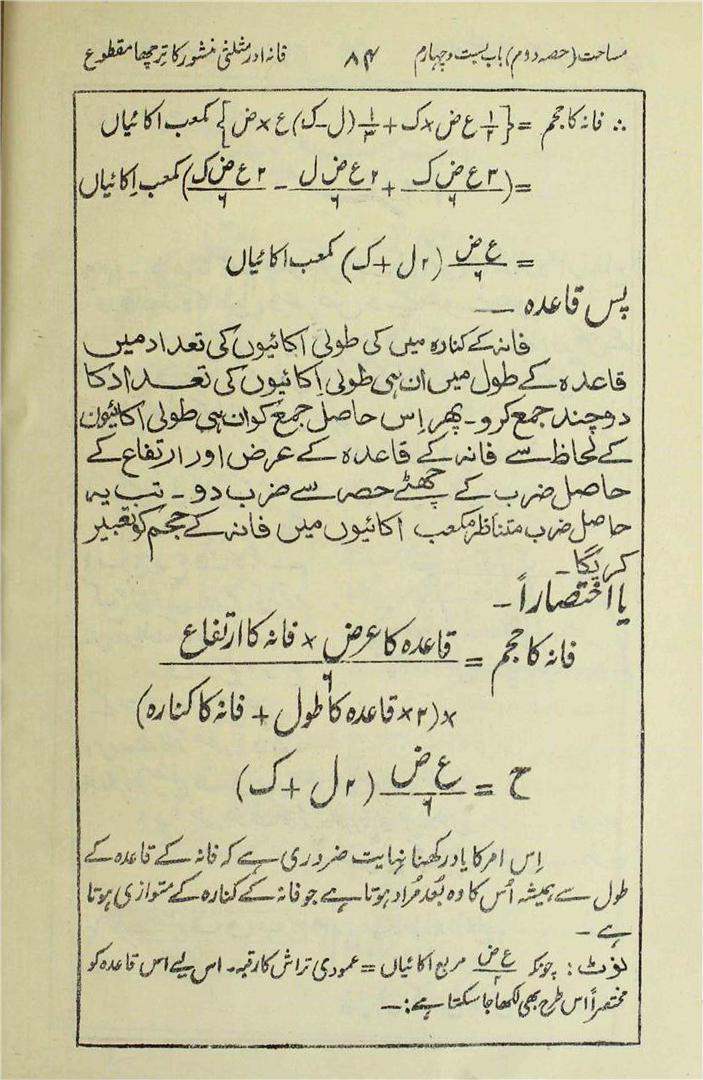 مساحت (حصہ دوم) باب بست و چہارم ۸۴ فانہ اور مثلثی منشور کا ترچھا مقطوع
∴ فانہ کا حجم = {۱/۲ ع ض × ک + ۱/۳ (ل - ک) ع × ض} مکعب اکائیاں
= (۳ ع ض ک/۶ + ۲ ع ض ل/۶ - ۲ ع ض ک/۶) مکعب اِکائیاں
= ع ض/۶ (۲ ل + ک) مکعب اکائیاں
پس قاعدہ —
فانہ کے کنارہ میں کی طولی اکائیوں کی تعداد میں
قاعدہ کے طول میں ان ہی طولی اِکائیوں کی تعداد کا
دو چند جمع کرو۔ پھر اِس حاصل جمع کو ان ہی طولی اکائیون
کے لحاظ سے فانہ کے قاعدہ کے عرض اور ارتفاع کے
حاصل ضرب کے چھٹے حصہ سے ضرب دو۔ تب یہ
حاصل ضرب متناظر مکعب اکائیوں میں فانہ کے حجم کو تعبیر
کریگا۔
یا اختصاراً۔
فانہ کا حجم = قاعدہ کا عرض × فانہ کا ارتفاع/۶
×(۲× قاعدہ کا طول + فانہ کا کنارہ)
ح = ع ض/۶ (۲ ل + ک)
اِس امر کا یاد رکھنا نہایت ضروری ہے کہ فانہ کے قاعدہ کے
طول سے ہمیشہ اُس کا وہ بُعد مُراد ہوتا ہے جو فانہ کے کنارہ کے متوازی ہوتا
ہے۔
نوٹ: چونکہ ع ض/۲ مربع اکائیاں = عمودی تراش کا رقبہ۔ اس لیے اس قاعدہ کو
مختصراً اس طرح بھی لکھا جا سکتا ہے:—